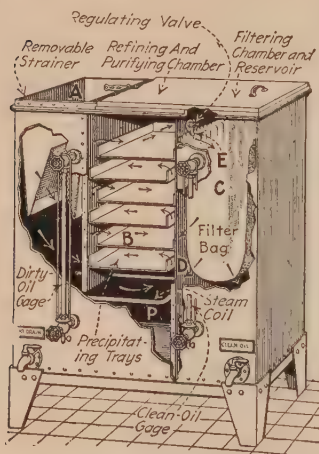 Regulating Valve
Removable
Strainer
Refining And
Purifying Chamber
Filtering
Chamber and
Reservoir
A
E
C
B
Filter
Bag
D
Dirty
Oil
Gage
P
Steam
Coil
Precipitat-
ing Trays
CLEAN OIL
Clean-Oil
Gage